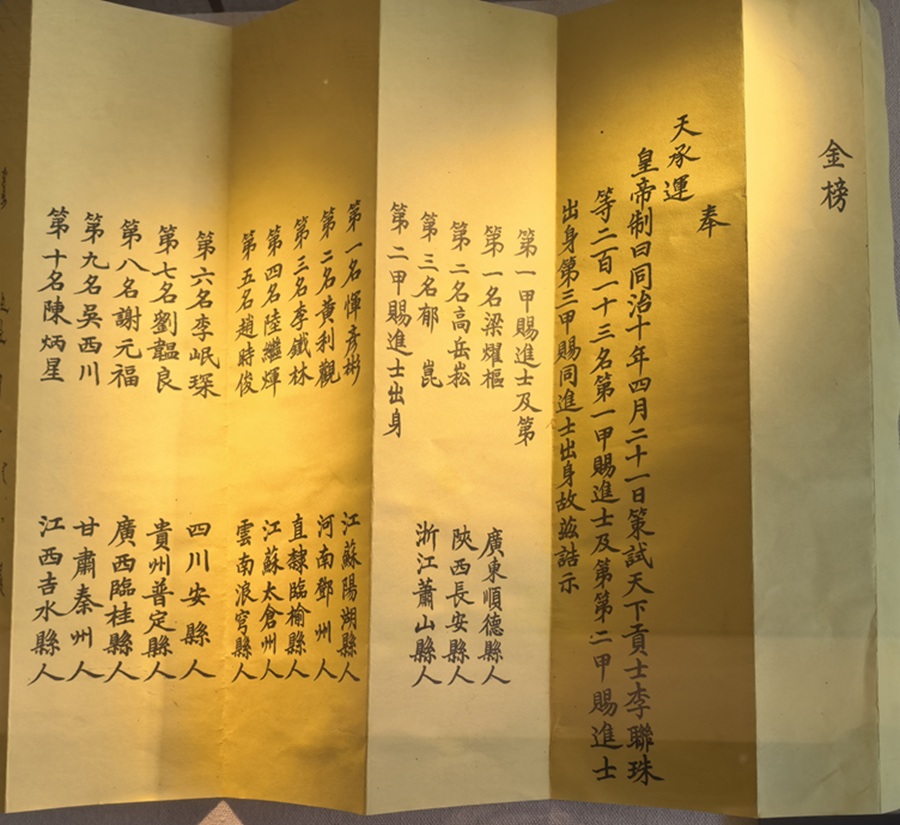 金榜
奉
天承運
皇帝制曰同治十年四月二十一日策試天下貢士李聯珠
等二百一十三名第一甲賜進士及第第二甲賜進士
出身第三甲賜同進士出身故茲誥示
第一甲賜進士及第
第一名梁燿樞 廣東順德縣人
第二名高岳崧 陝西長安縣人
第三名郁崑 浙江蕭山縣人
第二甲賜進士出身
第一名惲彥彬 江蘇陽湖縣人
第二名黃利觀 河南鄧州人
第三名李鐵林 直隸臨榆縣人
第四名陸繼煇 江蘇太倉州人
第五名趙時俊 雲南浪穹縣人
第六名李岷琛 四川安縣人
第七名劉韞良 貴州普定縣人
第八名謝元福 廣西臨桂縣人
第九名吳西川 甘肅秦州人
第十名陳炳星 江西吉水縣人